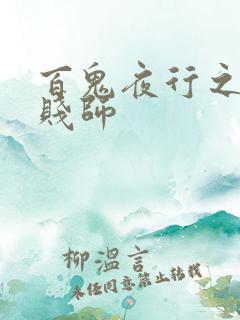 百鬼夜行之
賤師
柳溫言
未经同意禁止转载